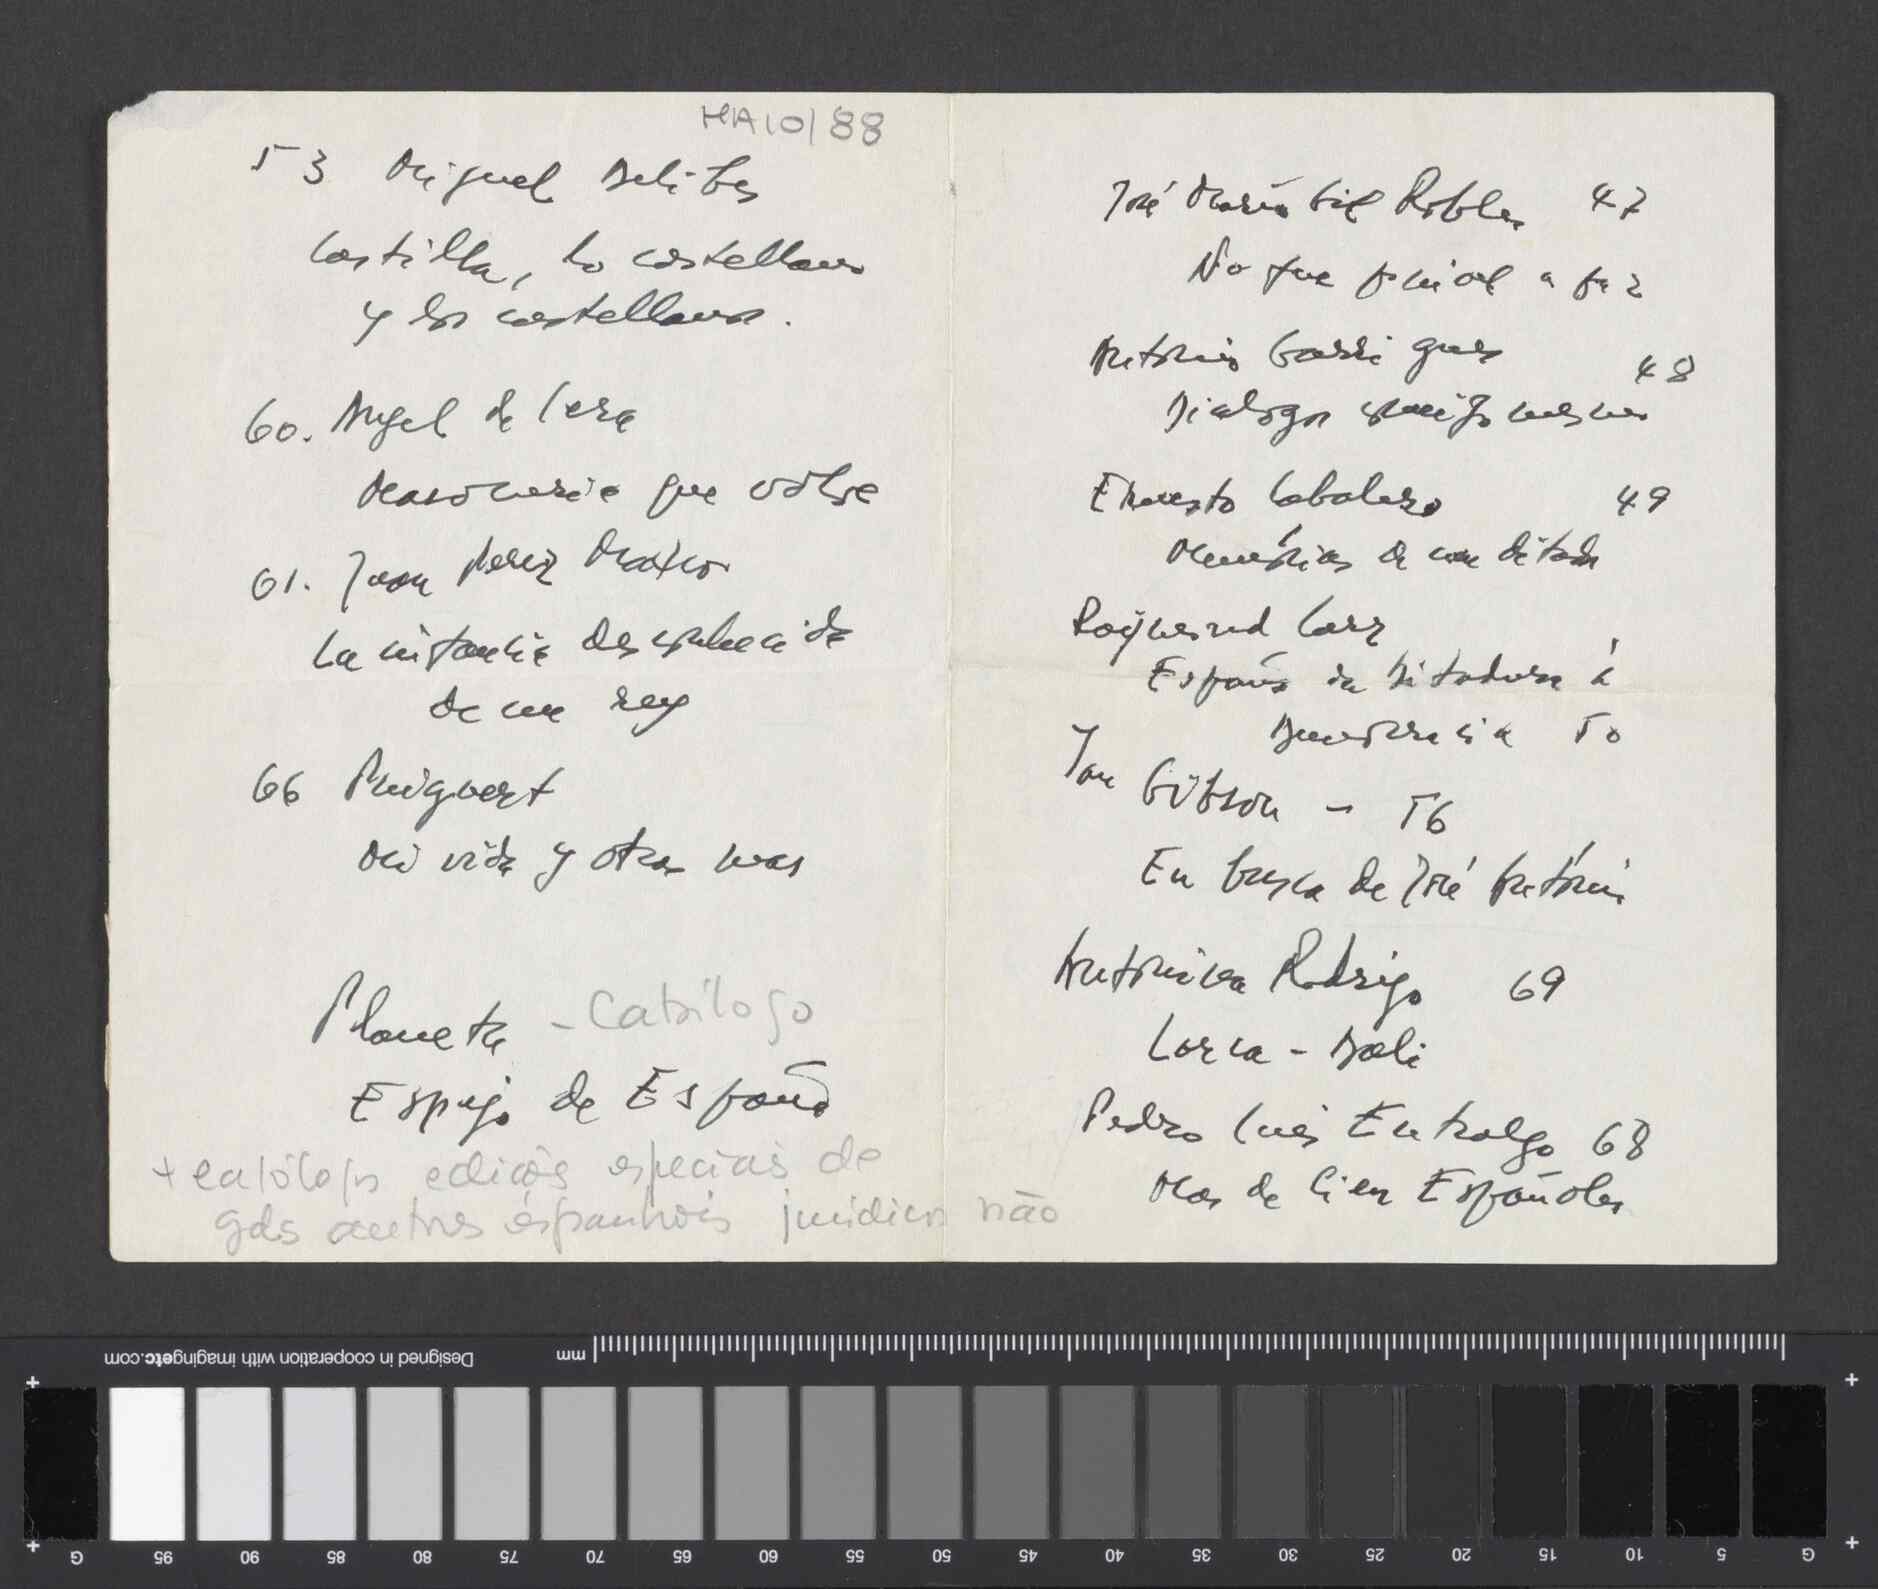 MAIO/88
53 Miguel Delibes
Castilla, lo castellano
y los castellanos.
60. Angel de Lera
Masoneria que volve
61. Juan Perez Mateos
La infancia desconhecida
de un rey
66 Puigvert
Mi vida y otras mas
Planeta - Catálogo
Espejo de España
+ catálogos edições especiais de
gds autores espanhóis jurídicos não
José Maria Gil Robles 47
No fue posible a paz
Antonio Garrigues 48
Dialogos conmigo mesmo
Ernesto Cabalero 49
Memórias de um ditador
Raymond Carr
España da Ditadura á
Democracia 50
Ian Gibson - 56
En busca de José António
Antonina Rodrigo 69
Lorca - Dali
Pedro Luis Entralgo 68
Mas de Cien Españoles
Designed in cooperation with imagingetc.com
mm
G 95 90 85 80 75 70 65 60 55 50 45 40 35 30 25 20 15 10 5 G